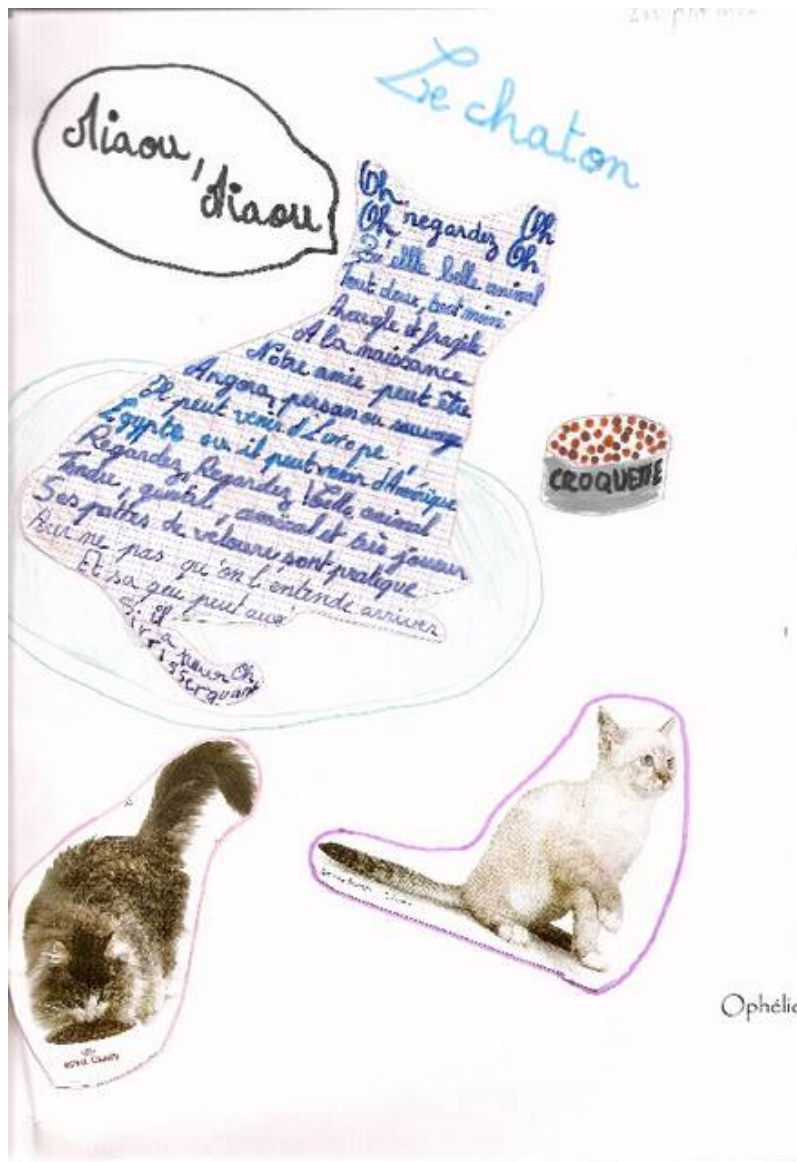 Le chaton
Miaou,
Miaou
Oh Oh
Oh regardez Oh
belle animal
Tout doux, tout mini
Aveugle et fragile
A la naissance
Notre amie peut être
Angora, persan ou sauvage
Il peut venir d'Europe
Egypte ou il peut d'Amérique
Regardez, Regardez, Belle animal
Tendre, gentil, amical et très joueur
Ses pattes de velours sont pratique
Pour ne pas qu'on l'entende arriver
Et sa peut
S'il
a peur Oh
CROQUETTE
ROYAL CANIN
Ophélie